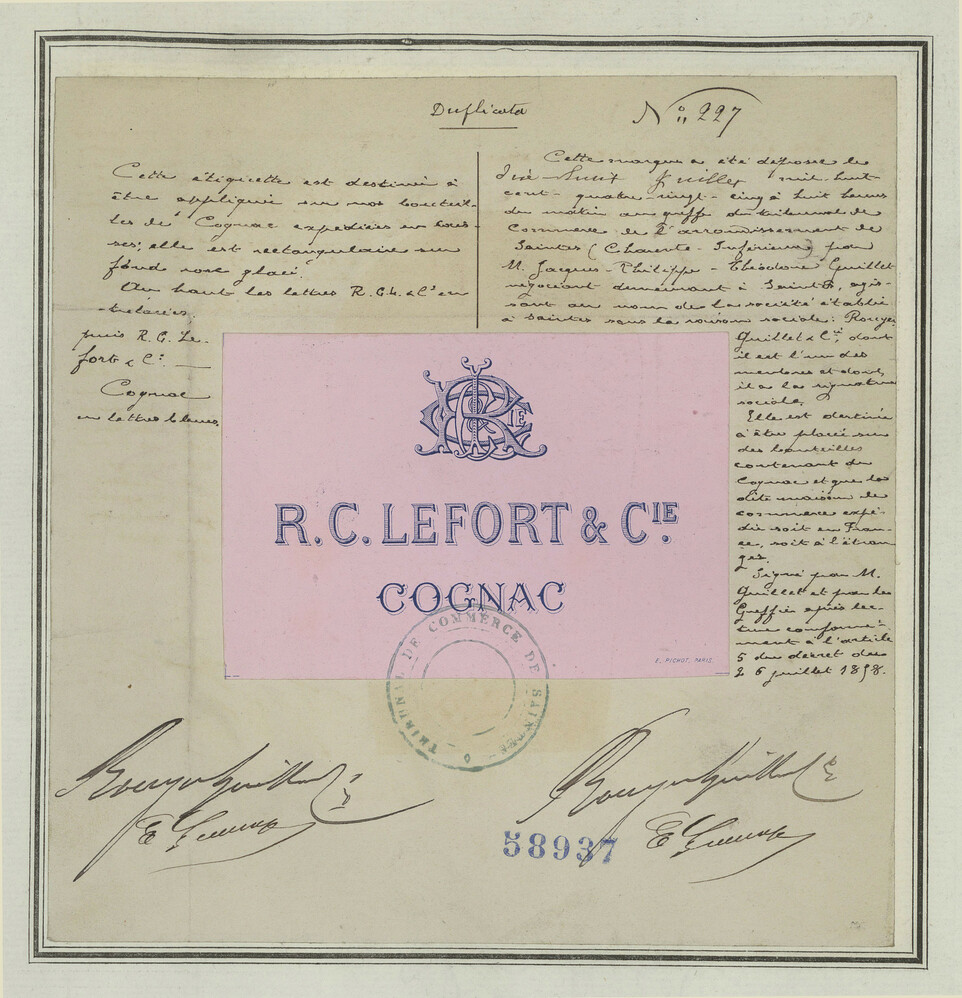 Duplicata
N° 227
Cette étiquette est destinée à
être appliquée sur nos bouteil-
les de Cognac expédiées en cais-
ses; elle est rectangulaire sur
fond rose glacé.
Au haut les lettres R.C.L. & Cie en-
trelacées,
puis R. C. Le-
fort & Cie
Cognac
en lettres bleues.
Cette marque a été déposée le
Juillet mil huit
cent quatre-vingt-cinq à huit heures
du matin au greffe du tribunal de
commerce de l'arrondissement de
Saintes (Charente-Inférieure) par
M. Jacques-Philippe-Théodore Guillet
négociant demeurant à Saintes, agis-
sant au nom de la société établie
à Saintes sous la raison sociale: Rouyer
Guillet & Cie, dont
il est l'un des
membres et dont
il a la signature
sociale.
Elle est destinée
à être placée sur
des bouteilles
contenant du
Cognac et que la
dite maison de
commerce expé-
die soit en Fran-
ce, soit à l'étran-
ger.
Signé par M.
Guillet et par le
Greffier après lec-
ture conformé-
ment à l'article
5 du décret du
26 juillet 1858.
IE
R.C. LEFORT & CIE.
COGNAC
E. PICHOT, PARIS.
TRIBUNAL DE COMMERCE DE SAINTES
Rouyer Guillet & Cie
Rouyer Guillet & Cie
58937